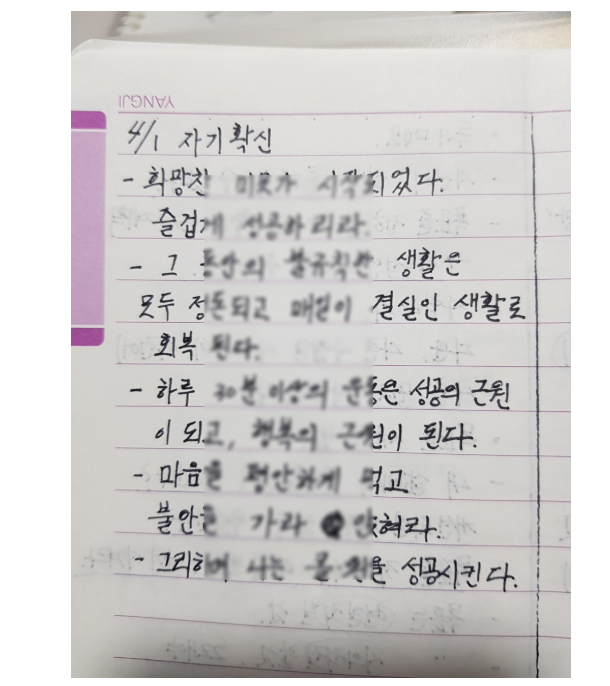 YANGJI
4/1 자기확신
- 희망찬 미래가 시작되었다.
즐겁게 성공하리라.
- 그 동안의 불규칙한 생활은
모두 정돈되고 매일이 결실인 생활로
회복된다.
- 하루 30분 이상의 운동은 성공의 근원
이 되고, 행복의 근원이 된다.
- 마음을 평안하게 먹고
불안을 가라앉혀라.
- 그리하여 나는 성공시킨다.